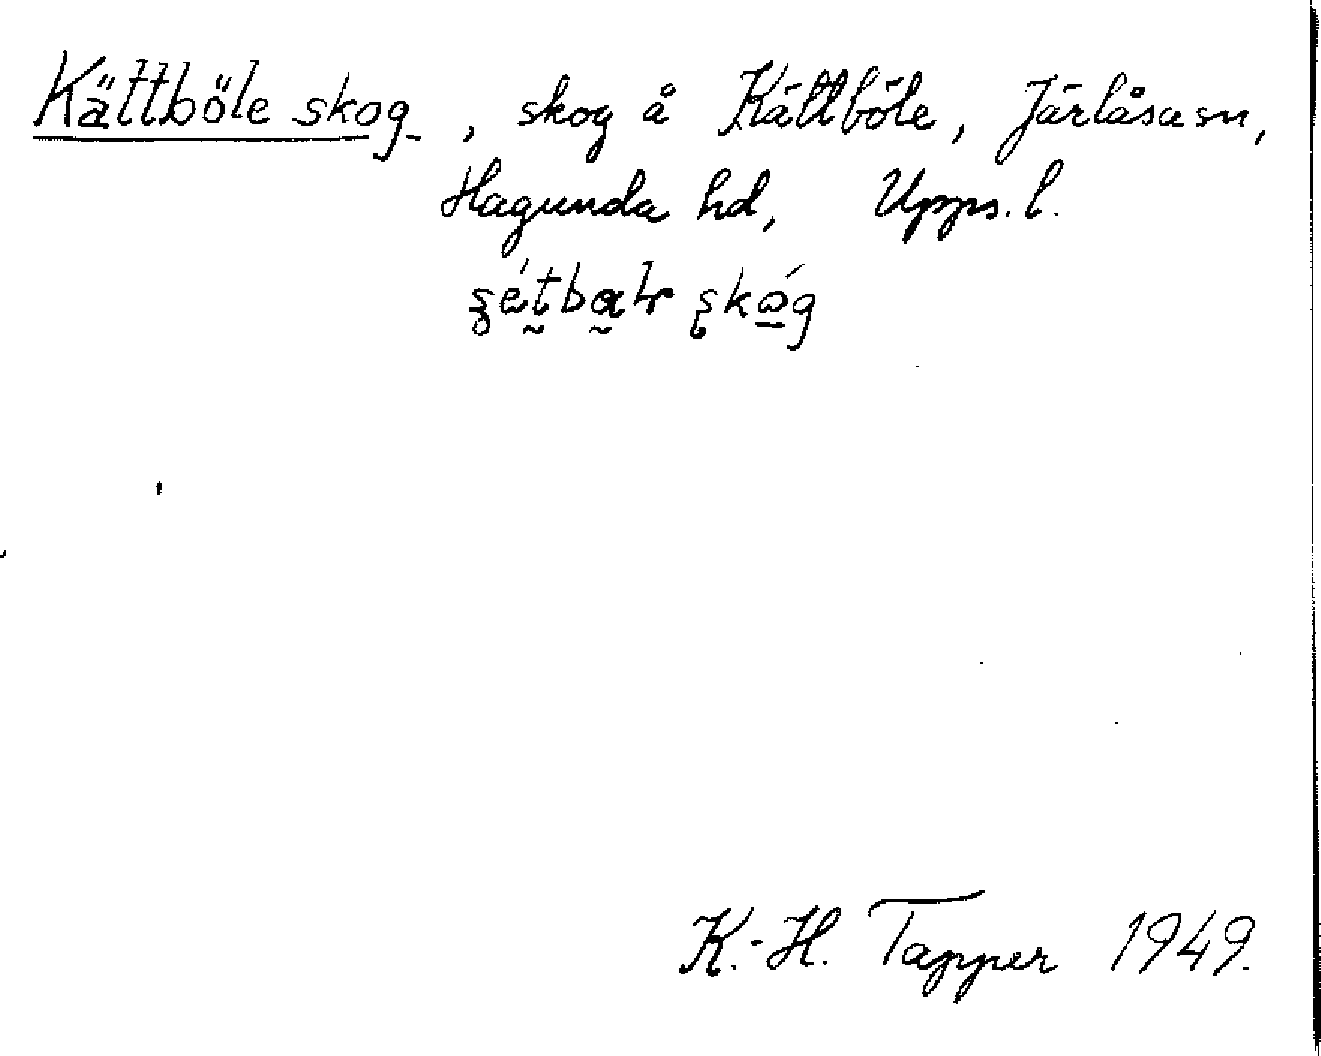 Kättböle skog, skog å Kättböle, Järlåsa sn,
Hagunda hd, Upps. l.
skóg
K.-H. Tapper 1949.